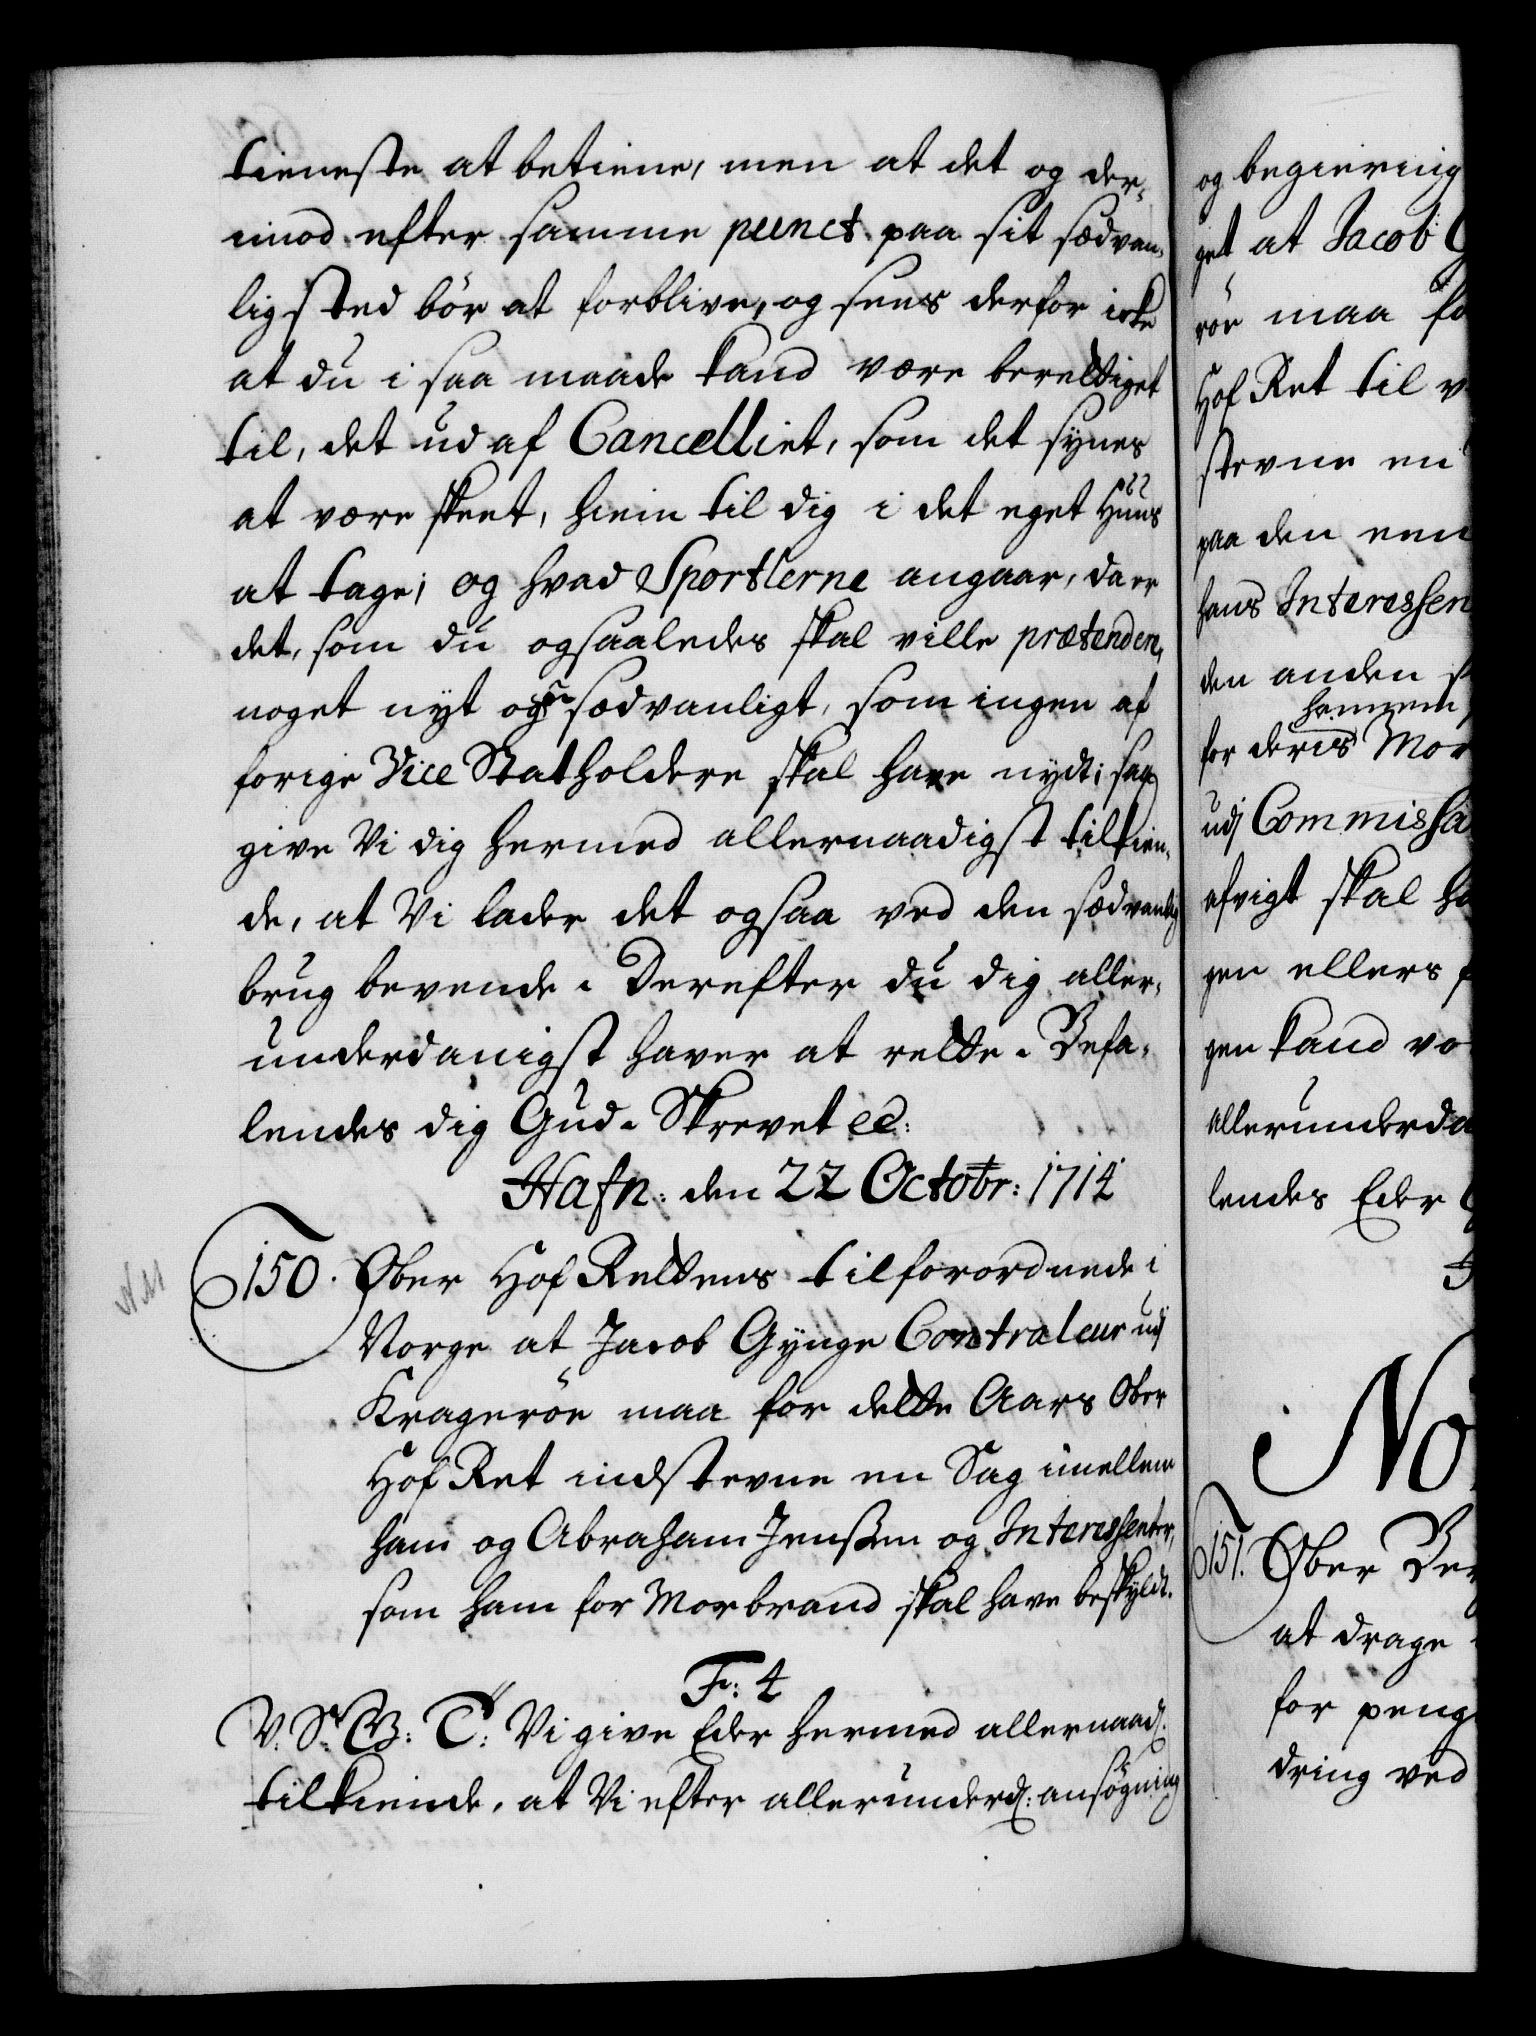 tieneste at betiene, men at det og der-
imod efter samme punct paa sit sædvan-
ligsted bör at forblive, og sees derfor icke
at du i saa maade kand være berettiget
til, det ud af Cancelliet, som det synes
at være skeet, hiem til dig i det eget Huus
at tage; og hvad Sportlerne angaar, da er
det, som du ogsaaledes skal ville prætendere,
noget nyt og sædvanligt, som ingen af
forige Vice Statholdere skal have nydt; saa
give Vi dig hermed allernaadigst tilkien-
de, at Vi lader det ogsaa ved den sædvanlig
brug bevende. Derefter du dig aller-
underdanigst haver at rette. Befa-
lendes dig Gud. Skrevet ec:
Hafn: den 22 Octobr: 1714
150. Ober Hof Rettens tilforordnede i
Norge at Jacob Gynge Contraleur udj
Kragerör maa for dette Aars Ober
Hof Ret indstevne en Sag imellem
ham og Abraham Jenssen og Interessenter,
som ham for Morbrand skal have beskyldt.
F: 4
V. Sr. G: T: Vi give Eder hermed allernaad:
tilkiende, at Vi efter allerunderd: ansögning
og begiering
get at Jacob G
rör maa fo
Hof Ret til v
stevne en
paa den een
hans Interessen
den anden s
hannem
for deris Mor
udj Commissa
afvigt skal ha
gen ellers f
gen kand vo
allerunderda
lendes Eder G
No
151. Ober Ber
at drage
for peng
dring ved